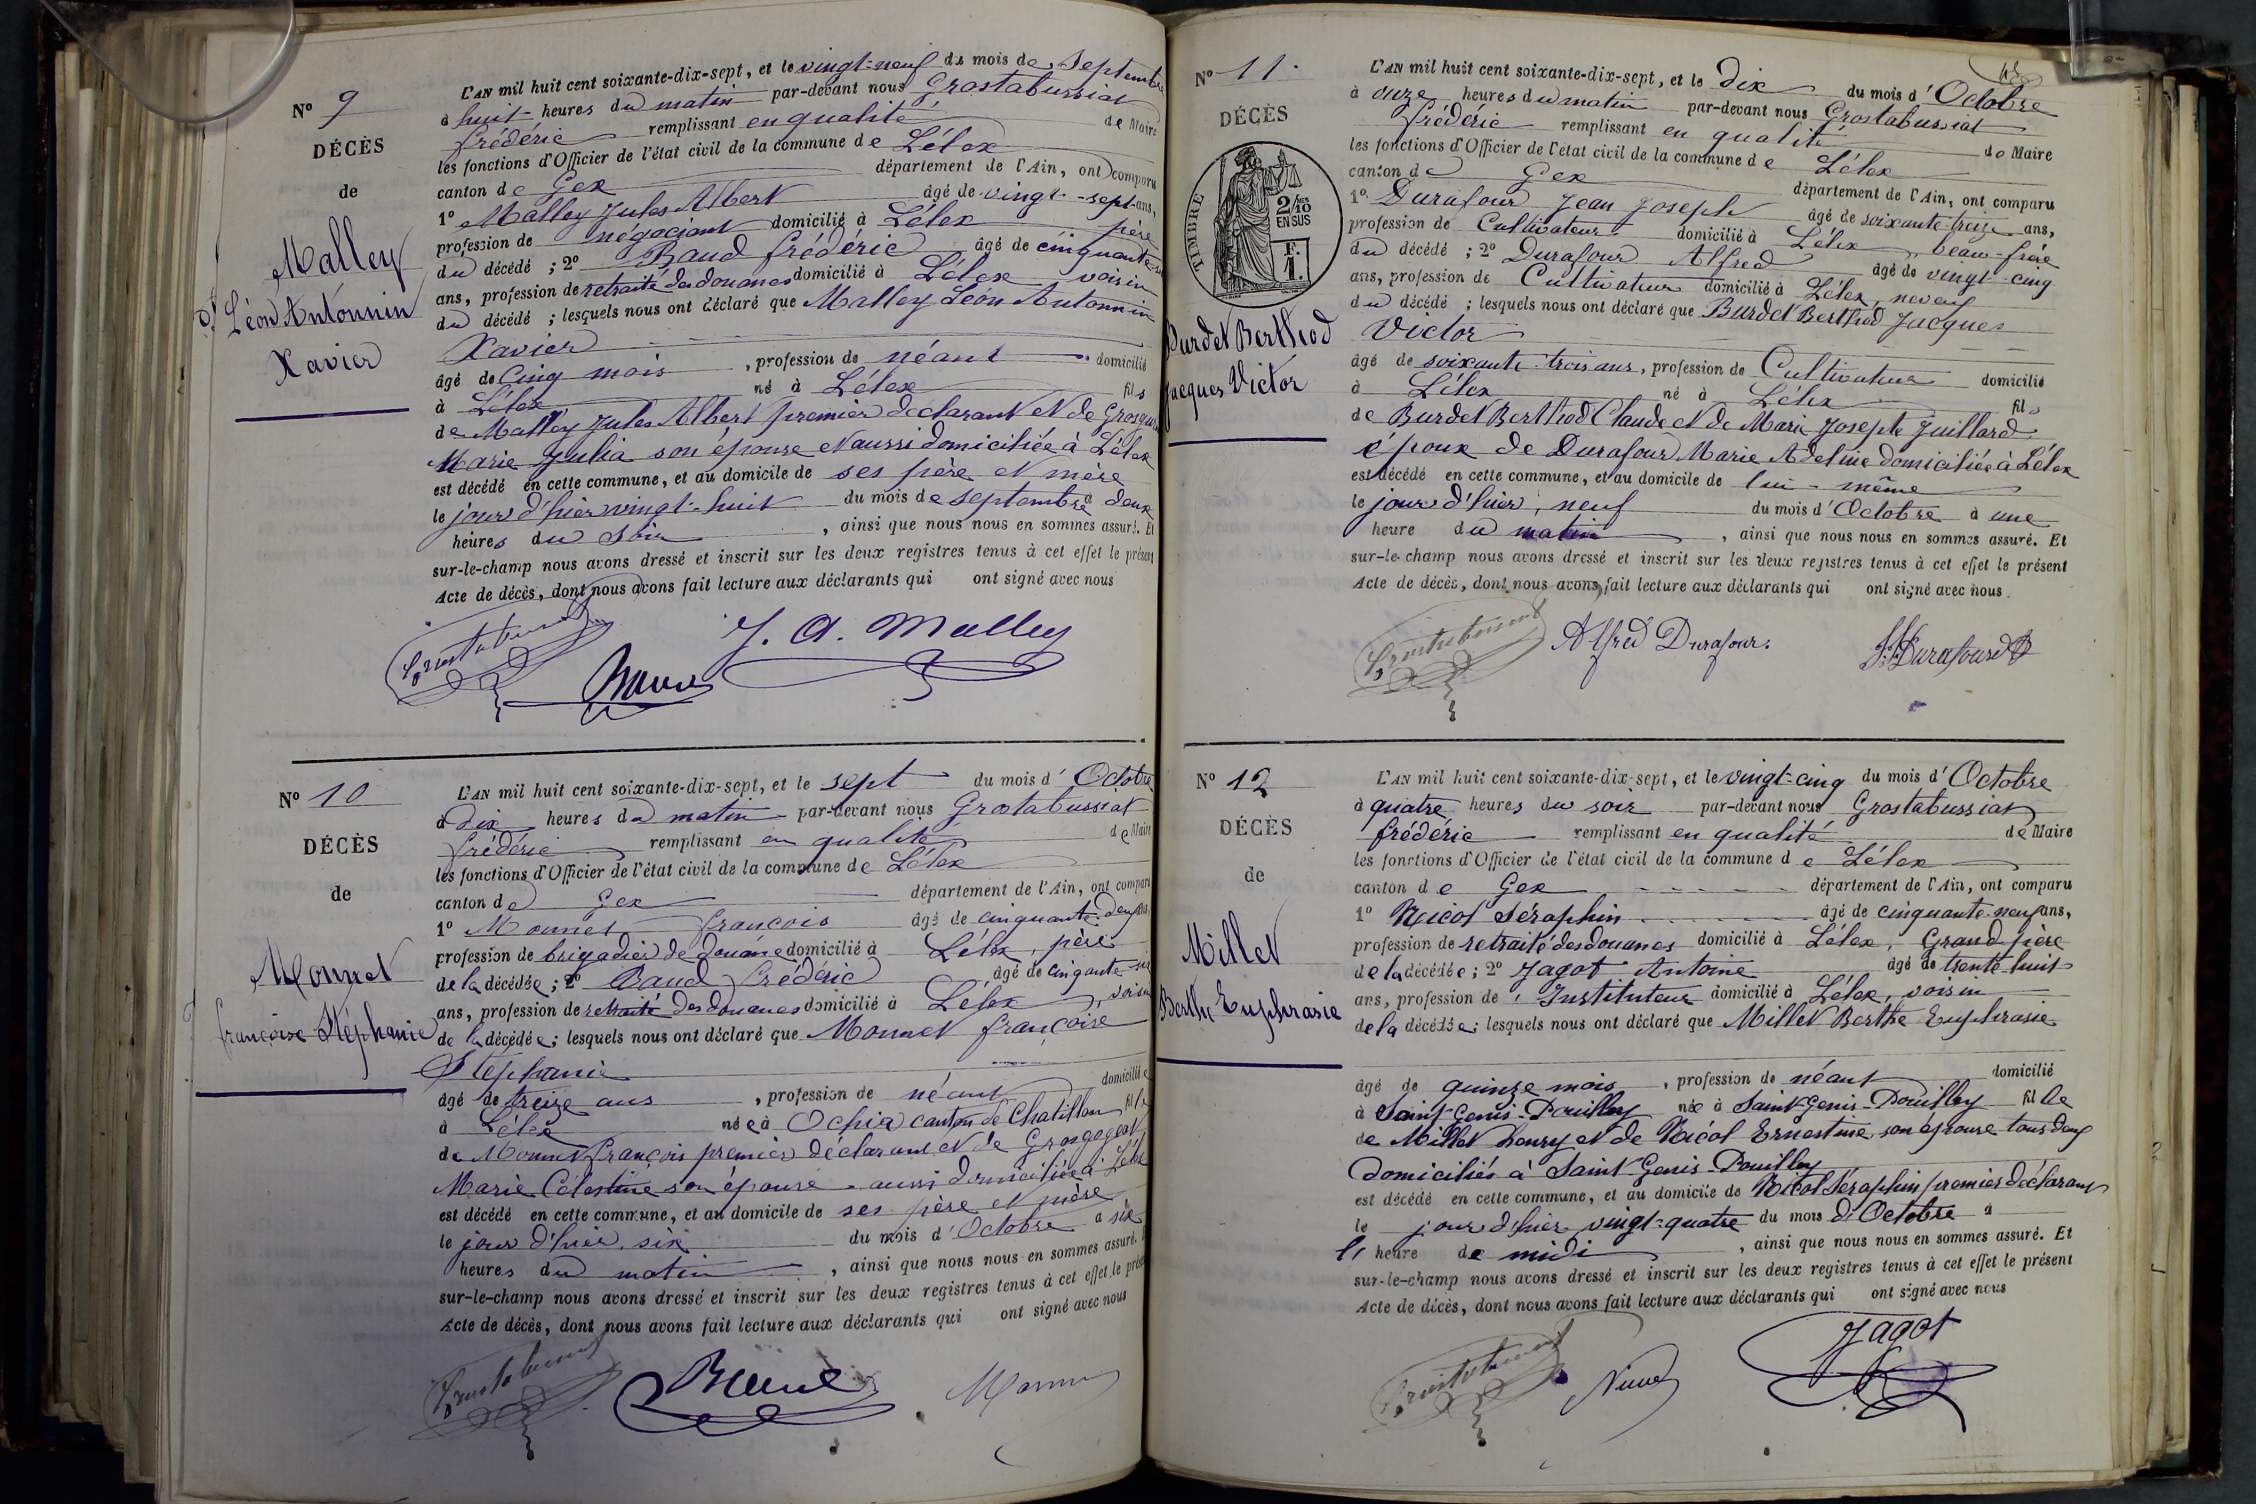 N° 9
DÉCÈS
de
Malley
Léon Antonnin
Xavier
L'AN mil huit cent soixante-dix-sept, et le vingt-neuf du mois de Septembre
à huit heures du matin par-devant nous Grostabussiat
frédéric remplissant en qualité de Maire
les fonctions d'Officier de l'état civil de la commune de Lélex
canton de Gex département de l'Ain, ont comparu
1° Malley Jules Albert âgé de vingt-sept ans,
profession de négociant domicilié à Lélex père
du décédé ; 2° Baud frédéric âgé de cinquante-six
ans, profession de retraité des douanes domicilié à Lélex voisin
du décédé ; lesquels nous ont déclaré que Malley Léon Antonnin
Xavier
âgé de Cinq mois , profession de néant domicilié
à Lélex né à Lélex fils
de Malley Jules Albert premier déclarant et de
Marie Julia son épouse et aussi domiciliée à Lélex
est décédé en cette commune, et au domicile de ses père et mère
le jour d'hier vingt-huit du mois de septembre à deux
heures du soir , ainsi que nous nous en sommes assuré. Et
sur-le-champ nous avons dressé et inscrit sur les deux registres tenus à cet effet le présent
Acte de décès, dont nous avons fait lecture aux déclarants qui ont signé avec nous
Grostabussiat
Baud
J. A. Malley
N° 10
DÉCÈS
de
Monnet
françoise Stéphanie
L'AN mil huit cent soixante-dix-sept, et le sept du mois d'Octobre
à dix heures du matin par-devant nous Grostabussiat
frédéric remplissant en qualité de Maire
les fonctions d'Officier de l'état civil de la commune de Lélex
canton de Gex département de l'Ain, ont comparu
1° Monnet françois âgé de cinquante-deux ans,
profession de brigadier de douane domicilié à Lélex, père
de la décédée ; 2° Baud frédéric âgé de cinquante-six
ans, profession de retraité des douanes domicilié à Lélex, voisin
de la décédée ; lesquels nous ont déclaré que Monnet françoise
Stéphanie
âgé de treize ans , profession de néant domiciliée
à Lélex née à Ochia canton de Chatillon fille
de Monnet françois premier déclarant et de Grosgogeat
Marie Célestine son épouse aussi domiciliée à Lélex
est décédé en cette commune, et au domicile de ses père et mère
le jour d'hier six du mois d'Octobre à six
heures du matin , ainsi que nous nous en sommes assuré.
sur-le-champ nous avons dressé et inscrit sur les deux registres tenus à cet effet le présent
Acte de décès, dont nous avons fait lecture aux déclarants qui ont signé avec nous
Grostabussiat
Baud
Monnet
N° 11
DÉCÈS
TIMBRE
2/10 EN SUS
F. 1.
Burdet Berthod
Jacques Victor
L'AN mil huit cent soixante-dix-sept, et le Dix du mois d'Octobre
à onze heures du matin par-devant nous Grostabussiat
frédéric remplissant en qualité de Maire
les fonctions d'Officier de l'état civil de la commune de Lélex
canton de Gex département de l'Ain, ont comparu
1° Durafour Jean Joseph âgé de soixante-treize ans,
profession de Cultivateur domicilié à Lélex, beau-frère
du décédé ; 2° Durafour Alfred âgé de vingt-cinq
ans, profession de Cultivateur domicilié à Lélex, neveu
du décédé ; lesquels nous ont déclaré que Burdet Berthod Jacques
Victor
âgé de soixante-trois ans, profession de Cultivateur domicilié
à Lélex né à Lélex fils
de Burdet Berthod Claude et de Marie Josephe Juillard
époux de Durafour Marie Adeline domiciliée à Lélex
est décédé en cette commune, et au domicile de lui-même
le jour d'hier, neuf du mois d'Octobre à une
heure du matin , ainsi que nous nous en sommes assuré. Et
sur-le-champ nous avons dressé et inscrit sur les deux registres tenus à cet effet le présent
Acte de décès, dont nous avons fait lecture aux déclarants qui ont signé avec nous.
Grostabussiat
Alfred Durafour.
J. J. Durafour
N° 12
DÉCÈS
de
Millet
Berthe Euphrasie
L'AN mil huit cent soixante-dix-sept, et le vingt-cinq du mois d'Octobre
à quatre heures du soir par-devant nous Grostabussiat
frédéric remplissant en qualité de Maire
les fonctions d'Officier de l'état civil de la commune de Lélex
canton de Gex département de l'Ain, ont comparu
1° Nicol Séraphin âgé de cinquante-neuf ans,
profession de retraité des douanes domicilié à Lélex, Grand-père
de la décédée ; 2° Jagot Antoine âgé de trente-huit
ans, profession de Instituteur domicilié à Lélex, voisin
de la décédée ; lesquels nous ont déclaré que Millet Berthe Euphrasie
âgé de quinze mois , profession de néant domicilié
à Saint-Genis-Pouilley née à Saint-Genis-Pouilley fille
de Millet henry et de Nicol Ernestine son épouse tous deux
domiciliés à Saint-Genis-Pouilley
est décédé en cette commune, et au domicile de Nicol Séraphin premier déclarant
le jour d'hier vingt-quatre du mois d'Octobre à
l' heure de midi , ainsi que nous nous en sommes assuré. Et
sur-le-champ nous avons dressé et inscrit sur les deux registres tenus à cet effet le présent
Acte de décès, dont nous avons fait lecture aux déclarants qui ont signé avec nous
Grostabussiat
Jagot